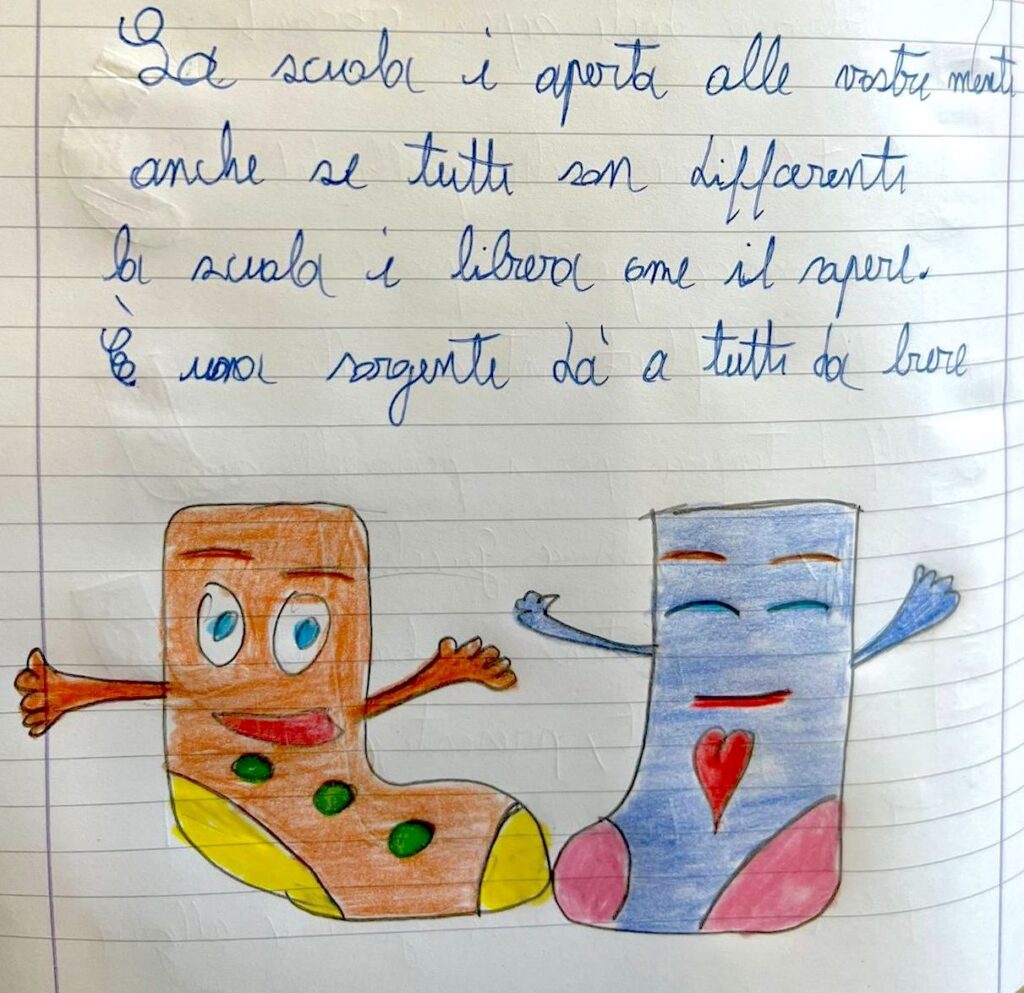 La scuola è aperta alle vostre menti
anche se tutti son differenti
la scuola è libera come il sapere.
È una sorgente dà a tutti da bere